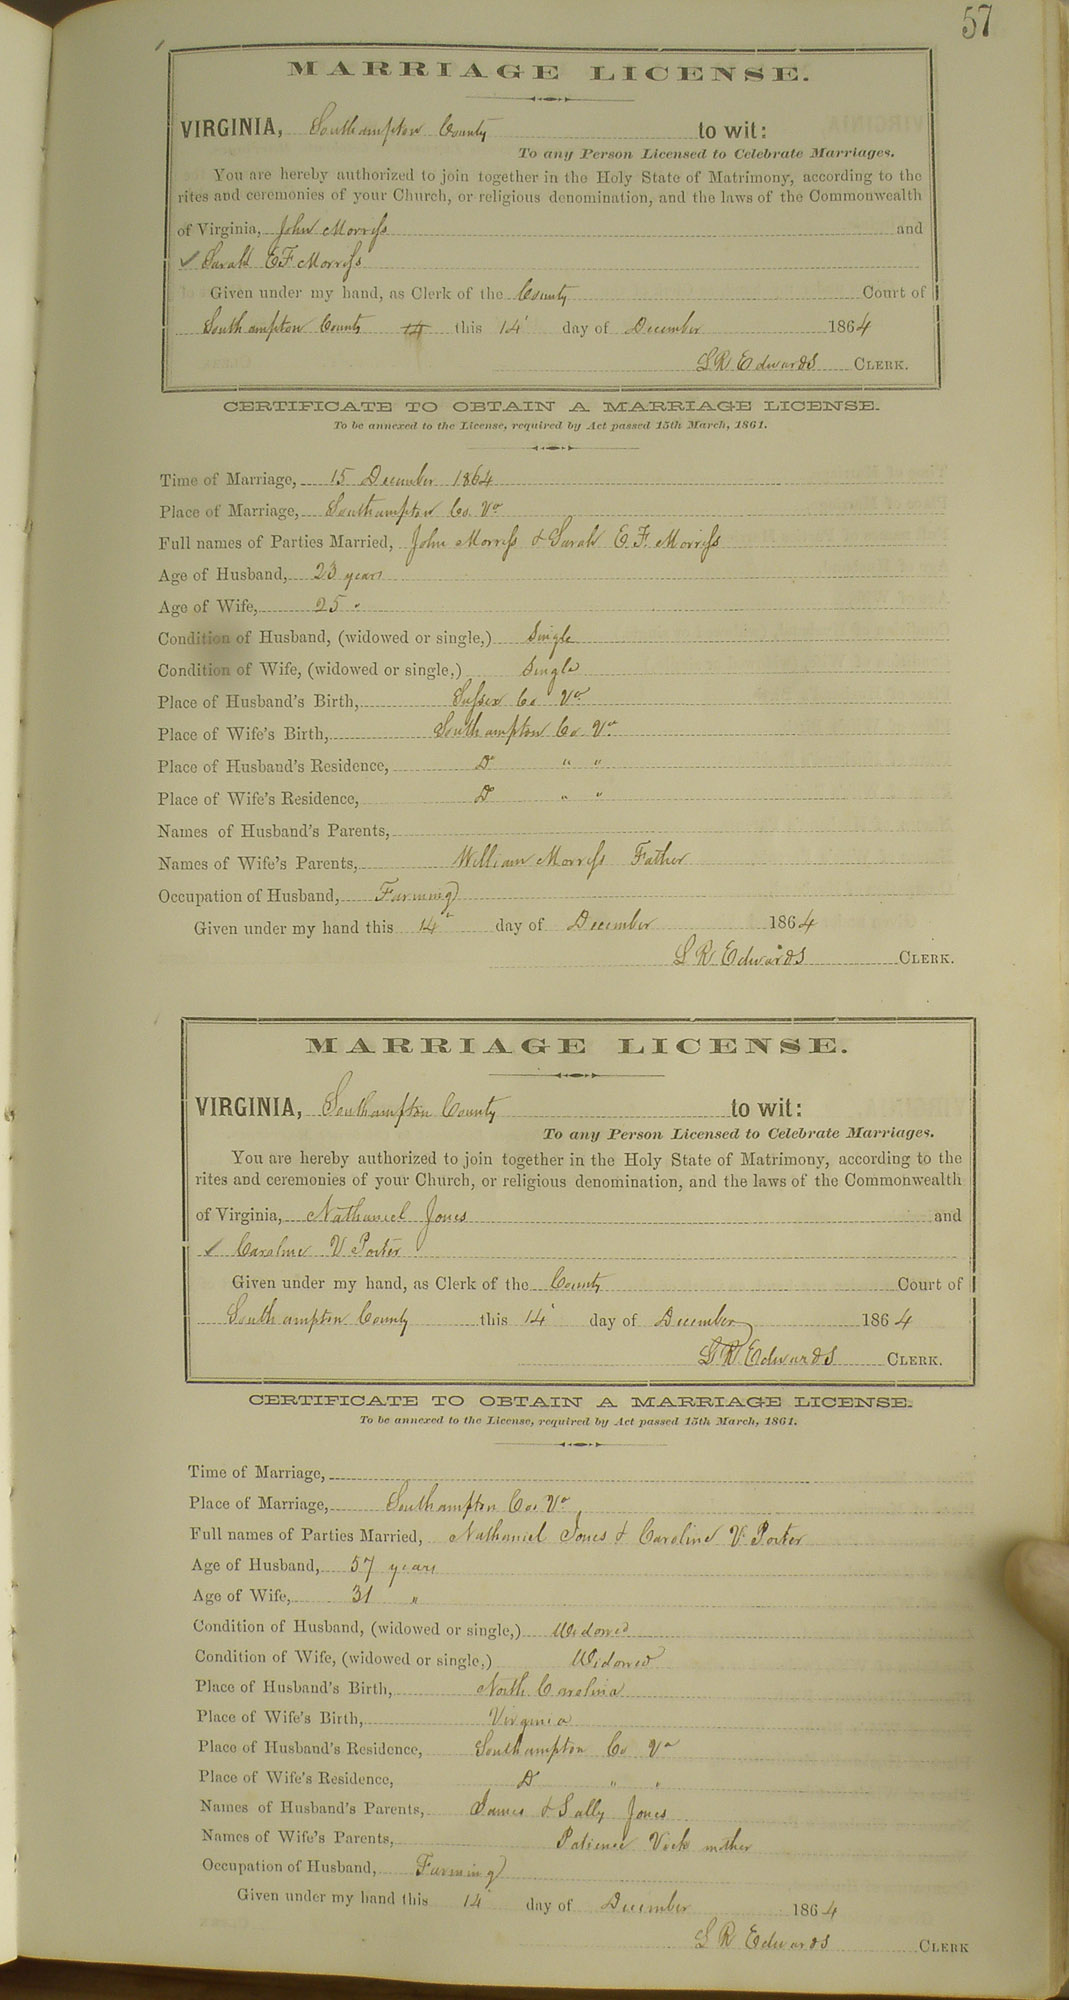 57
MARRIAGE LICENSE.
VIRGINIA, Southampton County to wit:
To any Person Licensed to Celebrate Marriages.
You are hereby authorized to join together in the Holy State of Matrimony, according to the
rites and ceremonies of your Church, or religious denomination, and the laws of the Commonwealth
of Virginia, John Morriss and
✓ Sarah E F Morriss
Given under my hand, as Clerk of the County Court of
Southampton County 14 this 14' day of December 1864
L R Edwards CLERK.
CERTIFICATE TO OBTAIN A MARRIAGE LICENSE.
To be annexed to the License, required by Act passed 15th March, 1861.
Time of Marriage, 15 December 1864
Place of Marriage, Southampton Co. Va
Full names of Parties Married, John Morriss & Sarah E. F. Morriss
Age of Husband, 23 years
Age of Wife, 25 "
Condition of Husband, (widowed or single,) Single
Condition of Wife, (widowed or single,) Single
Place of Husband's Birth, Sussex Co Va
Place of Wife's Birth, Southampton Co Va
Place of Husband's Residence, Do " "
Place of Wife's Residence, Do " "
Names of Husband's Parents,
Names of Wife's Parents, William Morriss Father
Occupation of Husband, Farming
Given under my hand this 14" day of December 1864
L R Edwards CLERK.
MARRIAGE LICENSE.
VIRGINIA, Southampton County to wit:
To any Person Licensed to Celebrate Marriages.
You are hereby authorized to join together in the Holy State of Matrimony, according to the
rites and ceremonies of your Church, or religious denomination, and the laws of the Commonwealth
of Virginia, Nathaniel Jones and
✓ Caroline V Porter
Given under my hand, as Clerk of the County Court of
Southampton County this 14' day of December 1864
L R Edwards CLERK.
CERTIFICATE TO OBTAIN A MARRIAGE LICENSE.
To be annexed to the License, required by Act passed 15th March, 1861.
Time of Marriage,
Place of Marriage, Southampton Co. Va
Full names of Parties Married, Nathaniel Jones & Caroline V. Porter
Age of Husband, 57 years
Age of Wife, 31 "
Condition of Husband, (widowed or single,) Widowed
Condition of Wife, (widowed or single,) Widowed
Place of Husband's Birth, North Carolina
Place of Wife's Birth, Virginia
Place of Husband's Residence, Southampton Co Va
Place of Wife's Residence, Do " "
Names of Husband's Parents, James & Sally Jones
Names of Wife's Parents, Patience Vick mother
Occupation of Husband, Farming
Given under my hand this 14 day of December 1864
L R Edwards CLERK